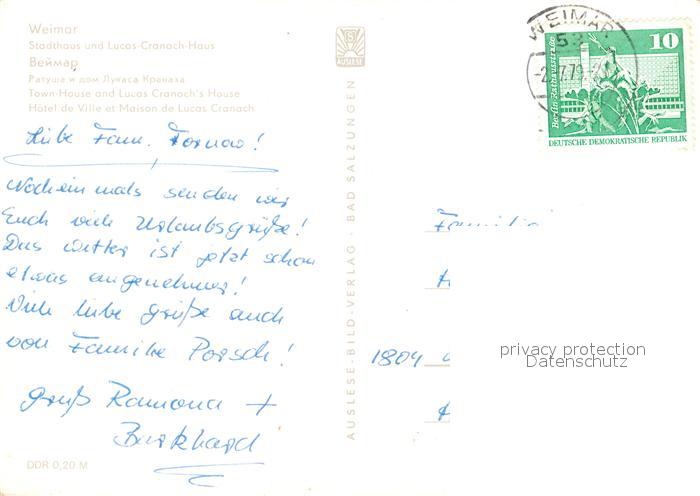 Weimar
Stadthaus und Lucas-Cranach-Haus
Веймар
Ратуша и дом Лукаса Кранаха
Town-House and Lucas Cranach's House
Hôtel de Ville et Maison de Lucas Cranach
AUSLESE
WEIMAR
53
Berlin, Rathausstraße
10
DEUTSCHE DEMOKRATISCHE REPUBLIK
Liebe Fam. Tornow!
Nocheinmals senden wir
Euch viele Urlaubsgrüße!
Das Wetter ist jetzt schon
etwas angenehmer!
Viele liebe Grüße auch
von Familie Porsch!
Gruß Ramona +
Burkhard
AUSLESE-BILD-VERLAG · BAD SALZUNGEN
Famili
1804
privacy protection
Datenschutz
DDR 0,20 M